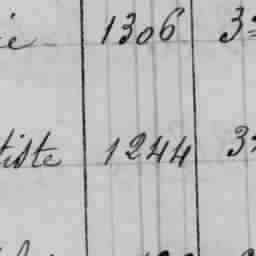 ie 1306 3
tiste 1244 3